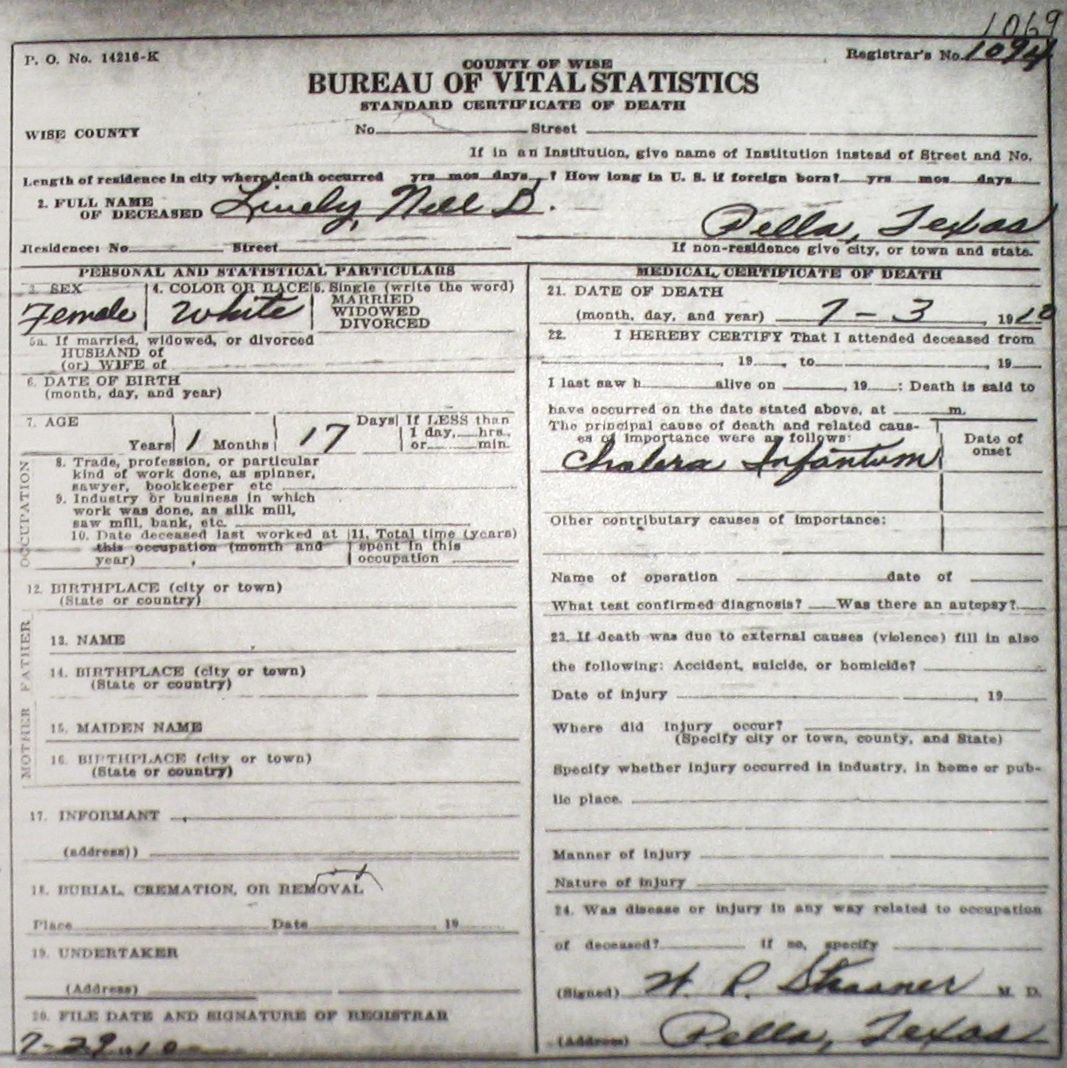 1069
P. O. No. 14216-K
Registrar's No. 1094
COUNTY OF WISE
BUREAU OF VITAL STATISTICS
STANDARD CERTIFICATE OF DEATH
WISE COUNTY No. Street
If in an Institution, give name of Institution instead of Street and No.
Length of residence in city where death occurred yrs mos days ? How long in U. S. if foreign born? yrs mos days
2. FULL NAME OF DECEASED Lively, Nell B.
Pella, Texas
Residence: No Street
If non-residence give city, or town and state.
PERSONAL AND STATISTICAL PARTICULARS
3. SEX Female
4. COLOR OR RACE White
5. Single (write the word)
MARRIED
WIDOWED
DIVORCED
5a. If married, widowed, or divorced
HUSBAND of
(or) WIFE of
6. DATE OF BIRTH
(month, day, and year)
7. AGE Years 1 Months 17 Days If LESS than
1 day, hrs.,
or min.
OCCUPATION
8. Trade, profession, or particular
kind of work done, as spinner,
sawyer, bookkeeper etc
9. Industry or business in which
work was done, as silk mill,
saw mill, bank, etc.
10. Date deceased last worked at
this occupation (month and
year)
11. Total time (years)
spent in this
occupation
12. BIRTHPLACE (city or town)
(State or country)
FATHER
13. NAME
14. BIRTHPLACE (city or town)
(State or country)
MOTHER
15. MAIDEN NAME
16. BIRTHPLACE (city or town)
(State or country)
17. INFORMANT
(address))
18. BURIAL, CREMATION, OR REMOVAL
Place Date 19
19. UNDERTAKER
(Address)
20. FILE DATE AND SIGNATURE OF REGISTRAR
7-29 1910
MEDICAL CERTIFICATE OF DEATH
21. DATE OF DEATH
(month, day, and year) 7-3, 1910
22. I HEREBY CERTIFY That I attended deceased from
, 19 , to , 19
I last saw h alive on , 19 : Death is said to
have occurred on the date stated above, at m.
The principal cause of death and related caus-
es of importance were as follows:
Date of
onset
Cholera Infantum
Other contributary causes of importance:
Name of operation date of
What test confirmed diagnosis? Was there an autopsy?
23. If death was due to external causes (violence) fill in also
the following: Accident, suicide, or homicide?
Date of injury , 19
Where did injury occur?
(Specify city or town, county, and State)
Specify whether injury occurred in industry, in home or pub-
lic place.
Manner of injury
Nature of injury
24. Was disease or injury in any way related to occupation
of deceased? If so, specify
(Signed) W. P. M. D.
(Address) Pella, Texas